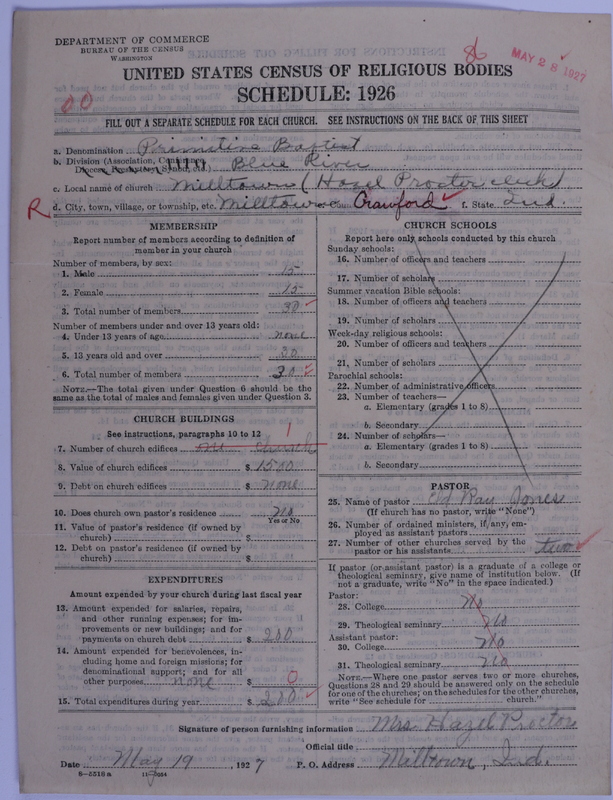 DEPARTMENT OF COMMERCE
BUREAU OF THE CENSUS
WASHINGTON
86
MAY 28 1927
UNITED STATES CENSUS OF RELIGIOUS BODIES
SCHEDULE: 1926
00
FILL OUT A SEPARATE SCHEDULE FOR EACH CHURCH. SEE INSTRUCTIONS ON THE BACK OF THIS SHEET
a. Denomination Primitive Baptist
b. Division (Association,
Blue River
c. Local name of church Milltown (Hazel Procter clerk)
R d. City, town, village, or township, etc. Milltown Crawford f. State Ind.
MEMBERSHIP
Report number of members according to definition of member in your church
Number of members, by sex:
1. Male 15
2. Female 15
3. Total number of members 30
Number of members under and over 13 years old:
4. Under 13 years of age none
5. 13 years old and over 30
6. Total number of members 30
NOTE.—The total given under Question 6 should be the same as the total of males and females given under Question 3.
CHURCH BUILDINGS
See instructions, paragraphs 10 to 12
1
7. Number of church edifices one church
8. Value of church edifices $ 1500
9. Debt on church edifices $ none
10. Does church own pastor's residence no
Yes or No
11. Value of pastor's residence (if owned by church) $
12. Debt on pastor's residence (if owned by church) $
EXPENDITURES
Amount expended by your church during last fiscal year
13. Amount expended for salaries, repairs, and other running expenses; for improvements or new buildings; and for payments on church debt $ 200
14. Amount expended for benevolences, including home and foreign missions; for denominational support; and for all other purposes none $ 0
15. Total expenditures during year $ 200
CHURCH SCHOOLS
Report here only schools conducted by this church
Sunday schools:
16. Number of officers and teachers
17. Number of scholars
Summer vacation Bible schools:
18. Number of officers and teachers
19. Number of scholars
Week-day religious schools:
20. Number of officers and teachers
21. Number of scholars
Parochial schools:
22. Number of administrative officers
23. Number of teachers—
a. Elementary (grades 1 to 8)
b. Secondary
24. Number of scholars—
a. Elementary (grades 1 to 8)
b. Secondary
PASTOR
25. Name of pastor Eld Ray Jones
(If church has no pastor, write "None")
26. Number of ordained ministers, if any, employed as assistant pastors
27. Number of other churches served by the pastor or his assistants two
If pastor (or assistant pastor) is a graduate of a college or theological seminary, give name of institution below. (If not a graduate, write "No" in the space indicated.)
Pastor:
28. College No
29. Theological seminary No
Assistant pastor:
30. College No
31. Theological seminary No
NOTE.—Where one pastor serves two or more churches, Questions 28 and 29 should be answered only on the schedule for one of the churches; on the schedules for the other churches, write "See schedule for church."
Signature of person furnishing information Mrs. Hazel Procter
Official title
Date May 19, 1927 P. O. Address Milltown, Ind.
8—5518a